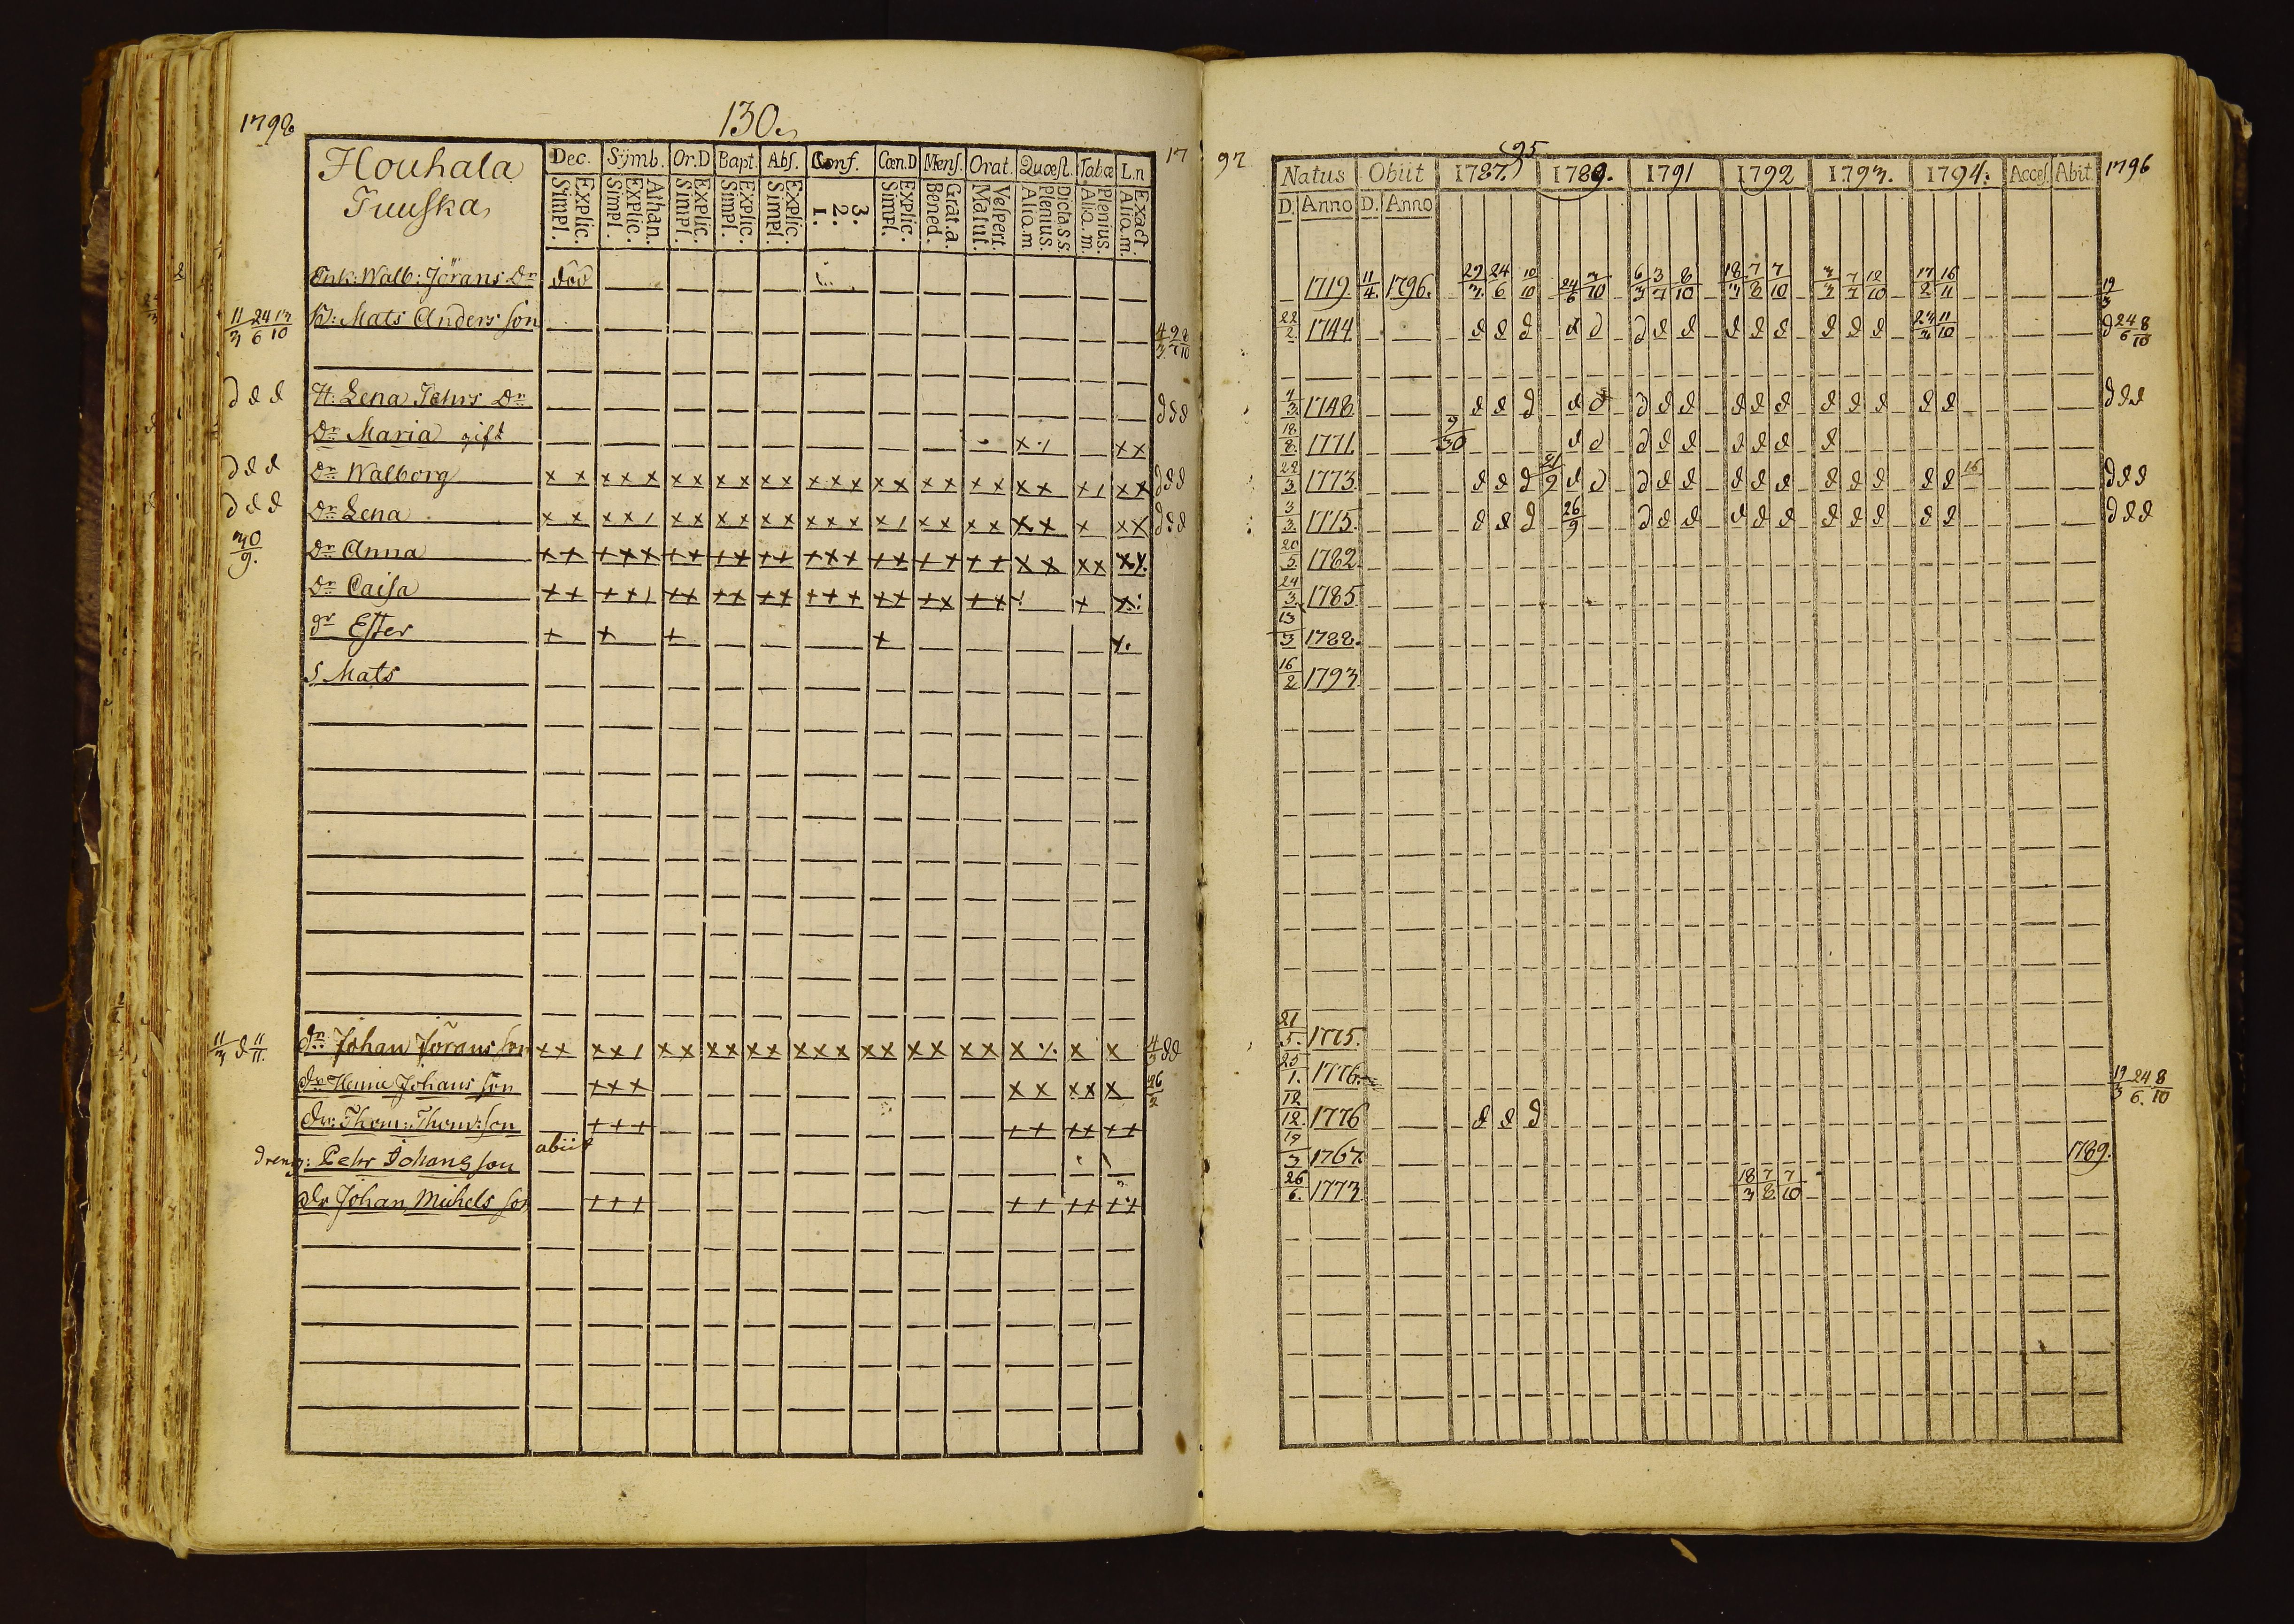 1798
130.
Houhala
Tuuska
Dec. Symb. Or.D Bapt. Abs. Conf. Cœn.D Mens. Orat. Quæst. Tabæ L.n
Simpl. Explic. Simpl. Explic. Athan. Simpl. Explic. Simpl. Explic. Simpl. Explic. 1. 2. 3. Simpl. Explic. Bened. Grat.a. Matut. Vespert. Aliq.m Plenius. Dicta.s.s. Aliq.m. Plenius. Aliq.m. Exact
Enk: Walb: Jörans Dr död
11/3 24/6 13/10 B: Mats Anders son 4/3 9/7 8/10
d d d H: Lena Pehrs Dr d d d
Dr Maria gift x / x x
d d d Dr Walborg x x x x x x x x x x x x x x x x x x x x x x x / x x d d d
d d d Dr Lena x x x x / x x x x x x x x x x / x x x x x x x x x d d d
30/9. Dr Anna x x x x x x x x x x x x x x x x x x x x x x x x x x
Dr Caisa x x x x / x x x x x x x x x x x x x x x / x x
dr Ester x x x x x
S Mats
11/3 d 11/11 dr Johan Jörans son x x x x / x x x x x x x x x x x x x x x x x / x x 4/3 d d
dr Henric Johans son x x x x x x x x 26/2
dr: Thom: Thoms:son x x x x x x x x x
dreng: Pehr Johans son abiit
dr Johan Michels son x x x x x x x x x
17 97
95
Natus Obiit 1787. 1789. 1791 1792 1793. 1794. Acces. Abit. 1796
D. Anno D. Anno
1719 11/4. 1796. 29/3 24/6 10/10 24/6 3/10 6/3 3/7 8/10 18/3 7/8 7/10 3/3 7/7 12/10 17/2 16/11 19/3
22/2. 1744 d d d d d d d d d d d d d d 23/3 11/10 d 24/6 8/10
4/3. 1748 d d d d d d d d d d d d d d d d d d d
18/8. 1771. 9/30 d d d d d d d d d
22/3. 1773. d d d 21/9 d d d d d d d d d d d d d 16 d d d
3/3. 1775. d d d 26/9 d d d d d d d d d d d d d d
20/5. 1782
24/3. 1785
13/3 1788.
16/2 1793
21/5. 1775.
25/1. 1776. 19/3 24/6. 8/10
12/12. 1776 d d d
19/3 1767. 1789.
26/6. 1773 18/3 7/8 7/10